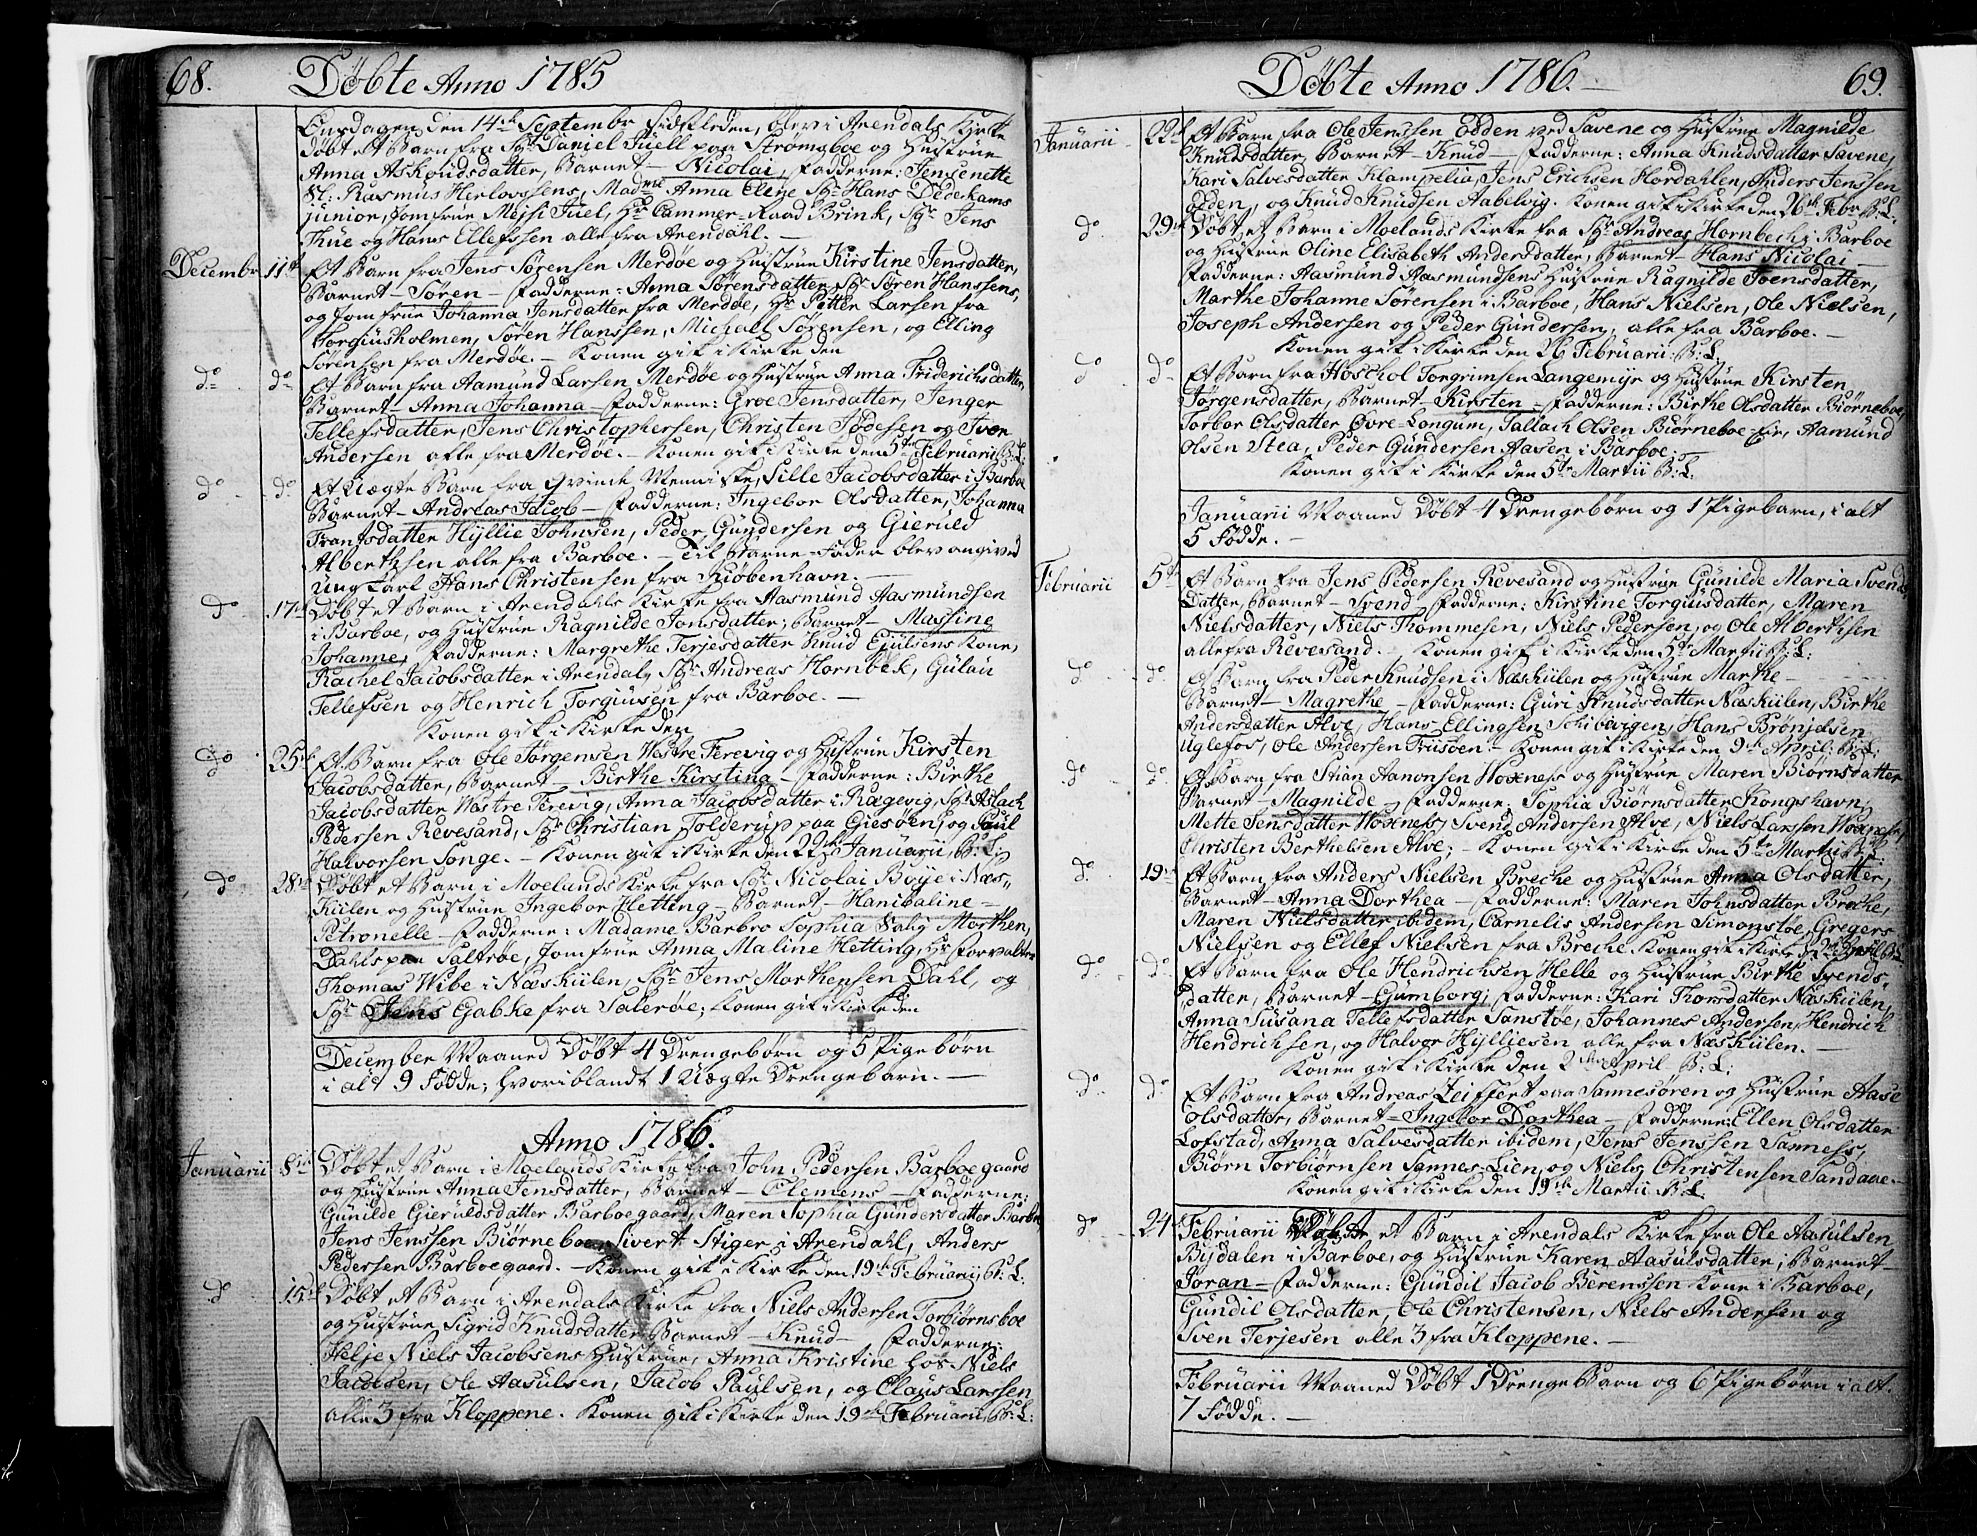 68. Döbte Anno 1785
Onsdagen den 14de Septembr sidstleden, blev i Arendals Kirke
döbt et Barn fra Sr Daniel Juell paa Strömsboe og Hustrue
Anna Askoudsdatter, Barnet - Nicolai, Fadderne: Jensenette
Sl: Rasmus Herlovssens, Madme Anna Elije Sr Hans Dedekams
junior, Jomfrue Mejsi Juel, Hr Cammer-Raad Brink, Sr Jens
Thue og Hans Ellefssen alle fra Arendahl. -
Decembr. 11te Et Barn fra Jens Sörensen Merdöe og Hustrue Kirstine Jensdatter,
Barnet - Sören - Fadderne: Anna Sörensdatter, Sr Sören Hanssens,
og Jomfrue Johanna Jensdatter fra Merdöe, Hr Petter Larsen fra
Torgiusholmen, Sören Hanssen, Michael Sörensen, og Elling
Sörensen fra Merdöe. - Konen gik i Kirke den
do do Et Barn fra Aamund Larsen Merdöe og Hustrue Anna Friderichsdatter,
Barnet - Anna Johanna - Fadderne: Groe Jensdatter, Jenger
Tellefsdatter, Jens Christophersen, Christen Jödesen og Iver
Andersen alle fra Merdöe. - Konen gik i Kirke den 5te Februarii B:L:
do do Et Uægte Barn fra Qvinde Menniske, Sille Jacobsdatter i Barboe
Barnet - Andreas Jacob - Fadderne: Ingebor Olsdatter, Johanna
Frantsdatter, Hyllie Johnsen, Peder Gundersen og Gieruld
Albertsen alle fra Barboe. - Til Barne-Fader blev angived
Ung Karl Hans Christensen fra Kiöbenhavn. -
do 17de Döbt et Barn i Arendahls Kirke fra Aasmund Aasmundsen
i Barboe, og Hustrue Ragnilde Jonsdatter; Barnet - Massine
Johanne, Fadderne: Margrethe Terjesdatter Knud Ejulsens Kone,
Rachel Jacobsdatter i Arendal, Sr Andreas Hornbek, Gulau
Tellefsen og Henrich Torgiusen fra Barboe. -
Konen gik i Kirke den
do 25de Et Barn fra Ole Jörgensen Westre Ferevig og Hustrue Kirsten
Jacobsdatter, Barnet - Birthe Kirstina - Fadderne: Birthe
Jacobsdatter Westre Ferevig, Anna Jacobsdatter i Rægevig, Sr Aslach
Pedersen Revesand, Sr Christian Tolderup paa Giesöen, og Paul
Halvorsen Songe. - Konen gik i Kirke den 22de Januarii B:L:
do 28de Döbt et Barn i Moelands Kirke fra Sr Nicolai Boye i Næs-
Kiilen og Hustrue Ingebor Hetting - Barnet - Hanibaline-
Petronelle - Fadderne: Madame Barbro Sophia Salig Morthen
Dahls paa Saltröe, Jomfrue Anna Maline Hetting, Hr Forvalter
Thomas Wibe i Næskiilen, Sr Jens Marthensen Dahl, og
Sr Jens Gabke fra Saleröe; Konen gik i Kirke den
December Maaned Döbt 4 Drengebörn og 5 Pigebörn
i alt 9 Födde; hvoriblandt 1 Uægte Drengebarn. -
Anno 1786.
Januarii 8de Döbt et Barn i Moelands Kirke fra John Pedersen Barboegaard
og Hustrue Anna Jensdatter, Barnet - Clemens - Fadderne:
Gunilde Gieruldsdatter Barboegaard, Maren Sophia Gundersdatter Barboe,
Jens Jenssen Biörneboe, Sivert Stiger i Arendahl, Anders
Pedersen Barboegaard. - Konen gik i Kirke den 19de Februarii B:L:
do 15de Döbt et Barn i Arendals Kirke fra Niels Andersen Torbiörnsboe
og Hustrue Sigrid Knudsdatter, Barnet - Knud - Fadderne:
Helje Niels Jacobsens Hustrue, Anna Kristine hos Niels
Jacobsen, Ole Aasulsen, Jacob Paulsen, og Claus Larssen
alle 3 fra Kloppene. Konen gik i Kirke den 19de Februarii B:L:
Döbte Anno 1786. - 69.
Januarii 22de Et Barn fra Ole Jenssen Odden ved Savene og Hustrue Magnilde
Knudsdatter, Barnet - Knud - Fadderne: Anna Knudsdatter Savene,
Kari Salvesdatter Klampelia, Jens Erichsen Hordahlen, Anders Jenssen
Odden, og Knud Knudsen Aabelvig. Konen gik i Kirke den 26de Febr B:L:
do 29de Döbt et Barn i Moelands Kirke fra Sr Andreas Hornbech i Barboe
og Hustrue Oline Elisabeth Andersdatter, Barnet - Hans Nicolai -
Fadderne: Aasmund Aasmundsens Hustrue Ragnilde Joensdatter,
Marthe Johanne Sörensen i Barboe, Hans Nielsen, Ole Nielsen,
Joseph Andersen og Peder Gundersen, alle fra Barboe. -
Konen gik i Kirke den 26 Februarii B:L:
do do Et Barn fra Höschol Torgrimsen Langemyr og Hustrue Kirsten
Jörgensdatter, Barnet - Kirsten - Fadderne: Birthe Olsdatter Biörneboe,
Torbor Olsdatter Övre-Longum, Tallach Olsen Biörneboe-Eie, Aamund
Olsen Stea, Peder Gundersen Aasen i Barboe.
Konen gik i Kirke den 5te Martii B:L:
Januarii Maaned Döbt 4 Drengebörn og 1 Pigebarn, i alt
5 Födde. -
Februarii 5te Et Barn fra Jens Pedersen Revesand og Hustrue Gunilde Maria Svends
Datter, Barnet - Svend - Fadderne: Kirstine Torgiusdatter, Maren
Nielsdatter, Niels Thommesen, Niels Pedersen, og Ole Alberthsen
alle fra Revesand. - Konen gik i Kirke den 5te Martii B:L:
do do Et Barn fra Peder Knudsen i Næskiilen og Hustrue Marthe -
Barnet - Magrethe - Fadderne: Guri Knudsdatter Næskiilen, Birthe
Andersdatter Alve, Hans Ellingsen Schibvigen, Hans Brönjelsen
Uglefos, Ole Andersen Trusöen - Konen gik i Kirke den 9de April. B:L:
do do Et Barn fra Stian Aanonsen Woxnæs og Hustrue Maren Biörnsdatter
Barnet - Magnilde - Fadderne: Sophia Biörnsdatter Kongshavn,
Mette Jensdatter Woxnes, Svend Andersen Alve, Niels Larssen Woxnes,
Christen Berthelsen Alve; - Konen gik i Kirke den 5te Martii B:L:
do 19de Et Barn fra Anders Nielsen Breche og Hustrue Anna Olsdatter,
Barnet - Anna Dorthea - Fadderne: Maren Johnsdatter Breche,
Maren Nielsdatter ibidem, Carnelis Andersen Simonstöe, Gregers
Nielsen og Ellef Nielsen fra Breche Konen gik i Kirke d 2de April B:L:
do do Et Barn fra Ole Hendrichsen Helle og Hustrue Birthe Svends-
Datter, Barnet - Gumborg; Fadderne: Kari Thorsdatter Næskiilen,
Anna Susana Tellefsdatter Sanstöe, Johannes Andersen, Hendrich
Hendrichsen, og Halvor Hylliesen alle fra Næskiilen. -
Konen gik i Kirke den 2den April B:L:
do do Et Barn fra Andreas Zeiffert paa Sannesören og Hustrue Aase
Olsdatter, Barnet - Ingebor Dorthea - Fadderne: Ellen Olsdatter
Lofstad, Anna Salvesdatter ibidem, Jens Jenssen Sanness,
Biörn Torbiörnsen Sannes-Lien, og Niels Christensen Sandaae. -
Konen gik i Kirke den 19de Martii B:L:
do 24 Februarii Döbt et Barn i Arendals Kirke fra Ole Aasulsen
Bijdalen i Barboe, og Hustrue Karen Aasulsdatter, Barnet -
Joran - Fadderne: Gundil Jacob Berenssen Kone i Barboe,
Gundil Olsdatter, Ole Christensen, Niels Andersen og
Sven Terjesen alle 3 fra Kloppene. -
Februarii Maaned Döbt 1 Drenge Barn og 6 Pigebörn i alt.
7 Födde. -